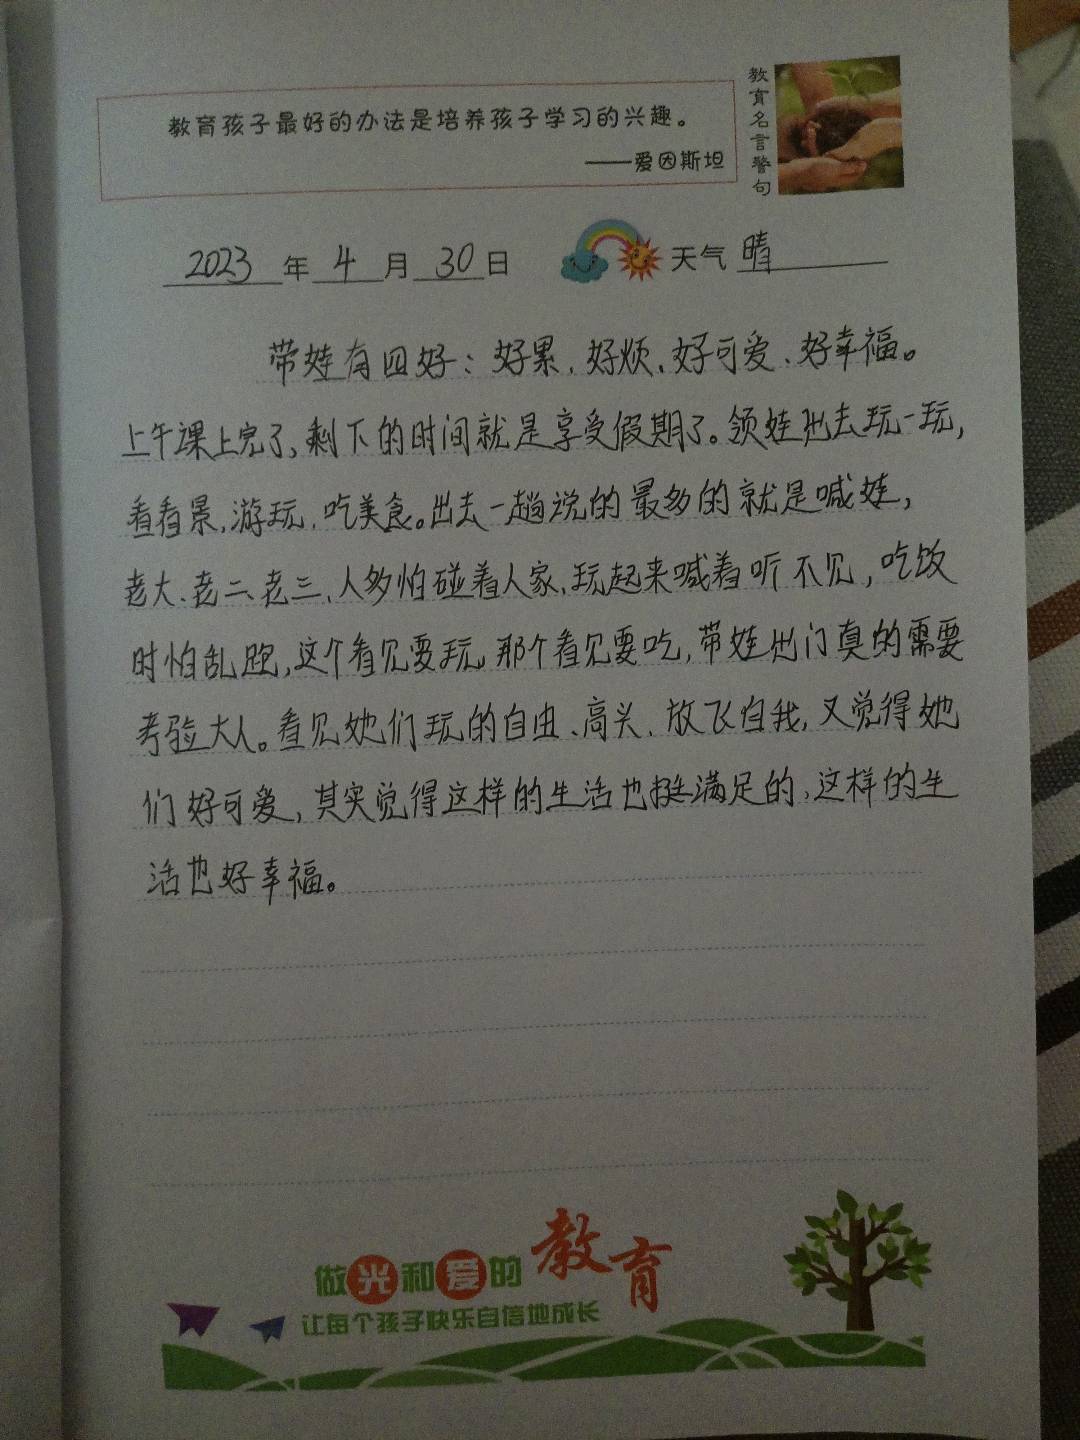 教育孩子最好的办法是培养孩子学习的兴趣。
——爱因斯坦
教育名言警句
2023年4月30日 天气 晴
带娃有四好：好累、好烦、好可爱、好幸福。
上午课上完了，剩下的时间就是享受假期了。领娃出去玩一玩，
看看景，游玩，吃美食。出去一趟说的最多的就是喊娃，
老大、老二、老三，人多怕碰着人家，玩起来喊着听不见，吃饭
时怕乱跑，这个看见要玩，那个看见要吃，带娃出门真的需要
考验大人。看见她们玩的自由、高兴、放飞自我，又觉得她
们好可爱，其实觉得这样的生活也挺满足的，这样的生
活也好幸福。
做光和爱的教育
让每个孩子快乐自信地成长